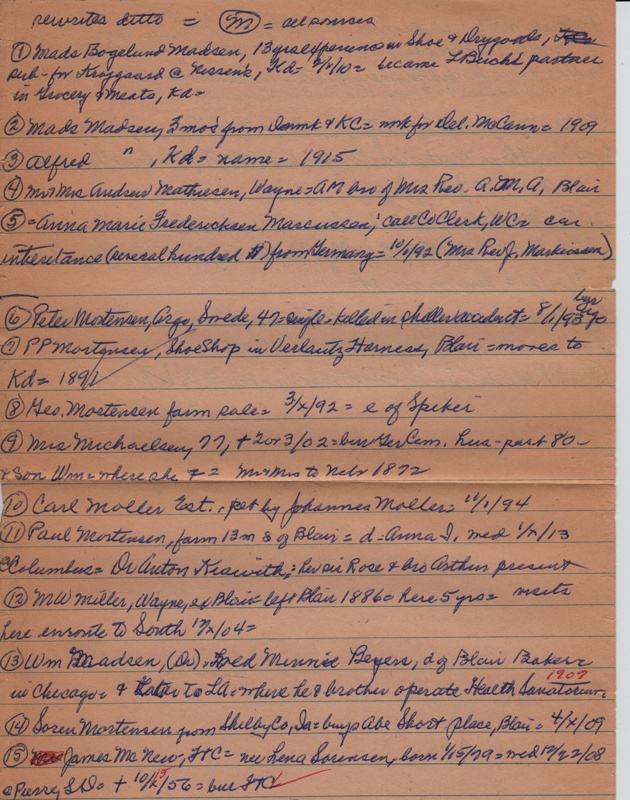 rewrites ditto = Ⓜ = all
① Mads Bogelund Madsen, 13 yrs experience in Shoe & Drygoods,
for Kroggaard @ Nissen's, Kd= 2/x/10 = became L Beck's partner
in Grocery & Meats, Kd=
② Mads Madsen, 3 mos from Denmk & KC = work for Del. McCann = 1909
③ Alfred " , Kd = name = 1915
④ Mr Mrs Andrew Mathiesen, Wayne = AM bro of Mrs Rev. A.M.A, Blair
⑤ = Anna Marie Frederichsen Marcussen, call Co Clerk, WC =
inheretance (several hundred #) from Germany = 10/x/92 (Mrs Rev J. Markussen)
⑥ Peter Mortensen, Argo, Swede, 47 = single = killed in sheller accident = 8/1/93
⑦ PP Mortensen, Shoe Shop in Harness, Blair = moves to
Kd = 1891
⑧ Geo. Mortensen farm sale = 3/x/92 = e of Spiker
⑨ Mrs Michaelsen, 77, + 2 or 3/02 = bur Ger Cem. hus - past 80 -
& Son Wm = where she + = Mr Mrs to Nebr 1872
⑩ Carl Moller Est. , pet by Johannes Moller = 11/1/94
⑪ Paul Mortensen, farm 13 m s of Blair = d - Anna I, wed 1/x/13
@ Columbus = Dr Anton , her sis Rose & bro Arthur present
⑫ MW Miller, Wayne, ex Blair = left Blair 1886 = here 5 yrs = visits
here enroute to South 12/x/04 =
⑬ Wm Madsen, (Dr), Wed Minnie Beyers, d of Blair Baker =
in Chicago = & later to LA = where he & brother operate Health Sanatorium = 1907
⑭ Soren Mortensen from Shelby Co, Ia = buys Abe Short place, Blair = 4/x/09
⑮ James Mc New, FtC = nee Lena Sorensen, born 1/15/79 = wed 12/22/08
@ Pierre, S.D. + 10/15/56 = bur FtC